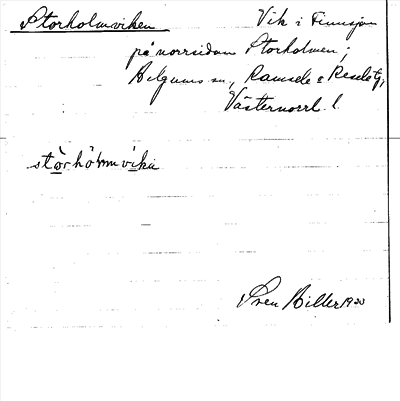 Storholmsviken Vik i Finnsjön
på norrsidan Storholmen;
Helgums sn, Ramsele o Resele tg,
Västernorrl. l.
stòrhòlmmvíka
Sven Hiller 1920